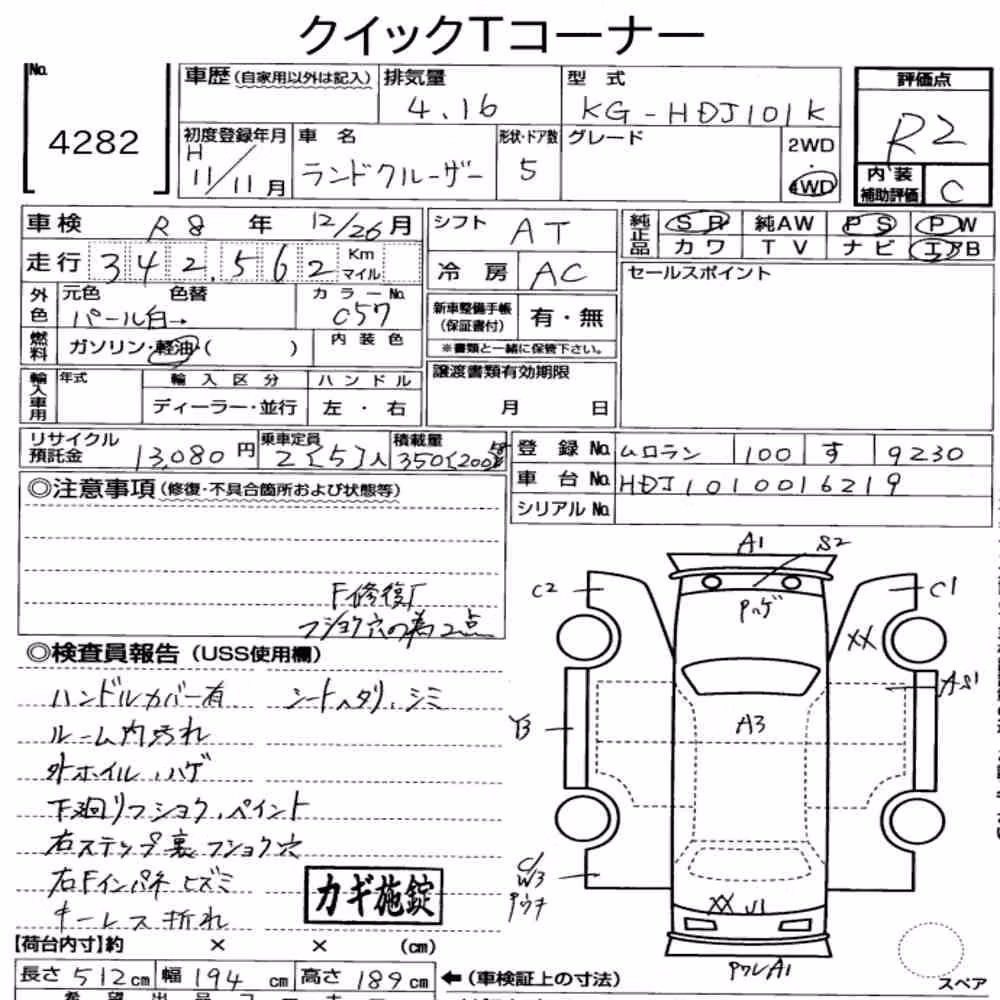 クイックTコーナー
No.
4282
車歴(自家用以外は記入)
排気量
4.16
型 式
KG-HDJ101K
評価点
R2
初度登録年月
H
11/11月
車 名
ランドクルーザー
形状・ドア数
5
グレード
2WD
・
4WD
内 装
補助評価
C
車検
R8 年 12/26月
シフト
AT
純正品
SR 純AW PS PW
カワ TV ナビ エアB
走行
342,562
Km
マイル
冷 房
AC
セールスポイント
外色
元色 色替
パール白→
カラーNo.
057
新車整備手帳
(保証書付)
有・無
※書類と一緒に保管下さい。
燃料
ガソリン・軽油( )
内 装 色
輸入車用
年式
輸 入 区 分
ハ ン ド ル
ディーラー・並行
左 ・ 右
譲渡書類有効期限
月 日
リサイクル
預託金
13,080 円
乗車定員
2[5]人
積載量
登 録 No.
ムロラン 100 す 9230
車 台 No.
HDJ1010016219
シリアル No.
◎注意事項(修復・不具合箇所および状態等)
F修復歴
フショク穴の為2点
◎検査員報告(USS使用欄)
ハンドルカバー有 シートヘタリ、シミ
ルーム内汚れ
外ホイル、ハゲ
下廻りフショク、ペイント
右ステップ裏フショク穴
右Fインパネヒズミ
キーレス折れ
カギ施錠
A1 S2
C2 C1
Pハゲ
XX
AS1
Y3
A3
W3
XX U1
A1
スペア
【荷台内寸】約 × × (cm)
長さ512cm 幅194cm 高さ189cm ←(車検証上の寸法)